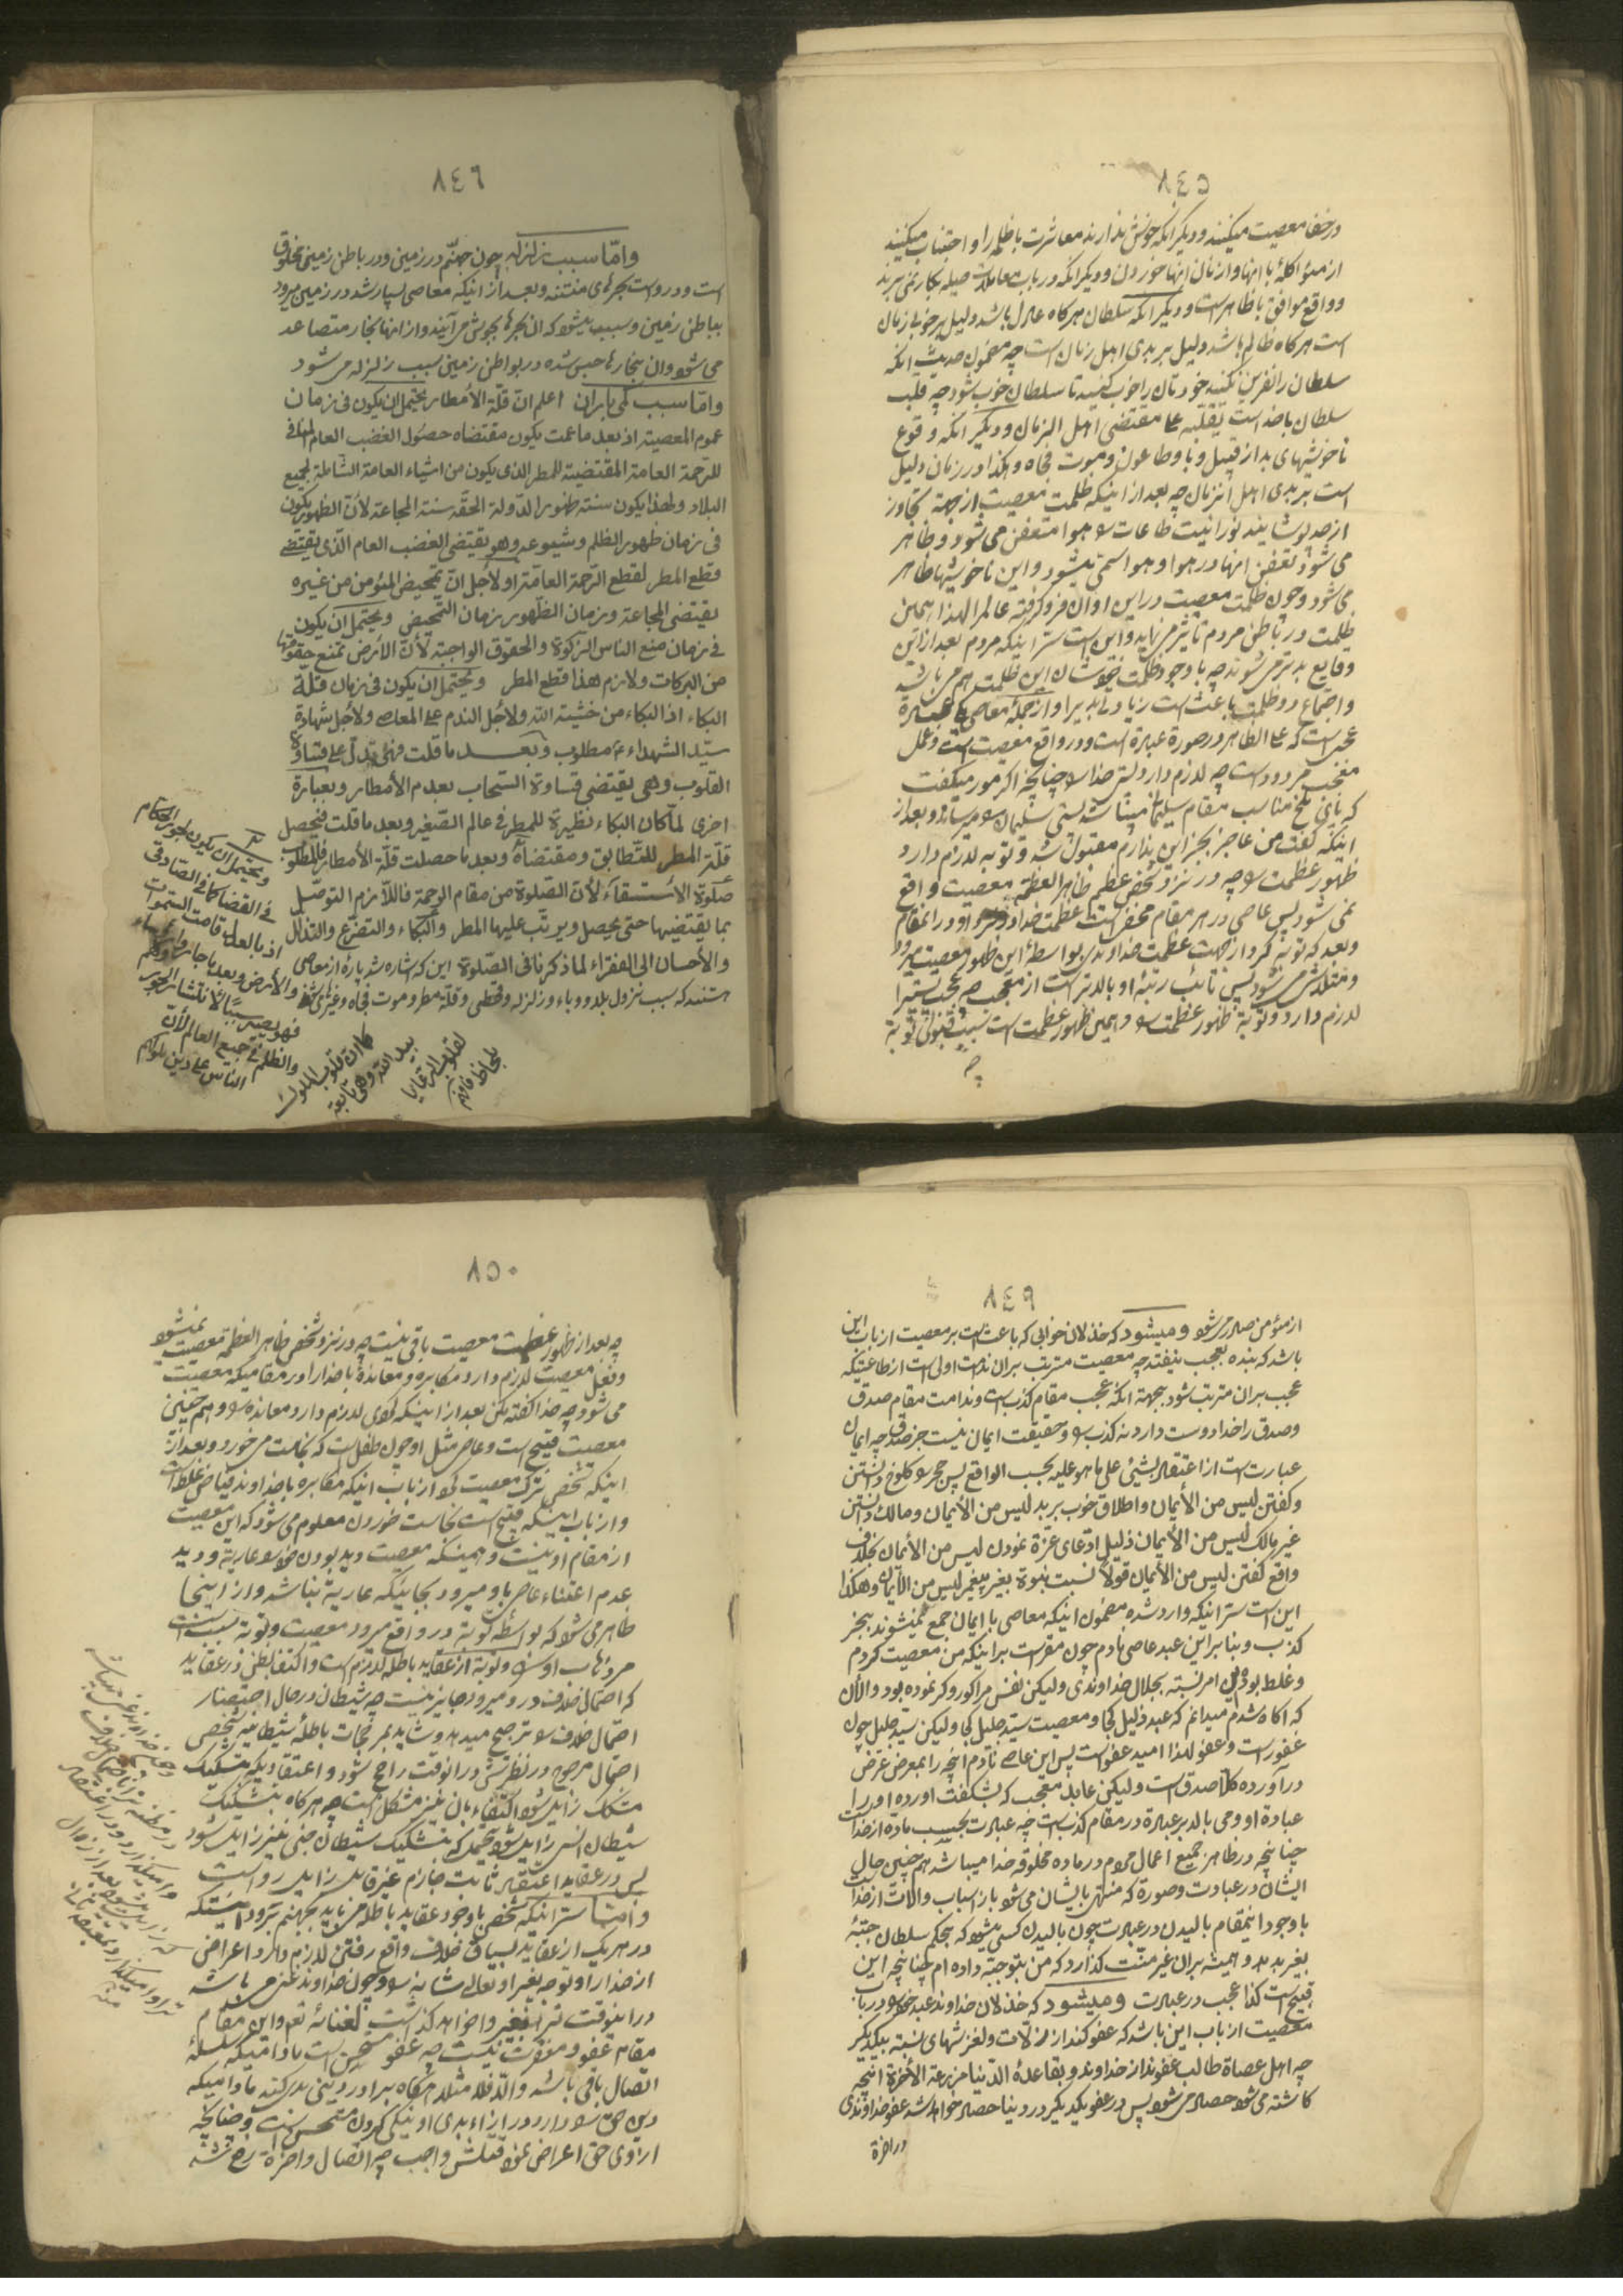 ٨٤٥
در خفا معصیت میکنند و دیگر انکه خوش ندارند معاشرت با ظلمه را و اجتناب میکنند
از مؤاکلهٔ با انها و از نان انها خوردن و دیگر انکه در باب معاملات حیله بکار نمی برند
و واقع موافق با ظاهر است و دیگر انکه سلطان هر کاه عادل باشد دلیل بر خوبی زمان
است هر کاه ظالم باشد دلیل بر بدی اهل زمان است چه مضمون حدیث انکه
سلطان را نفرین نکنید خودتان را خوب کنید تا سلطان خوب شود چه قلب
سلطان با خداست یقلبه علی مقتضی اهل الزمان و دیگر انکه وقوع
ناخوشیهای بد از قبیل وبا و طاعون و موت فجاه و هکذا در زمان دلیل
است بر بدی اهل انزمان چه بعد از اینکه ظلمت معصیت از جهة تجاوز
از حد پوشانید نورانیت طاعات را هوا متعفن می شود و ظاهر
می شود تعفن انها در هوا و هوا سمی میشود و این ناخوشیها ظاهر
می شود و چون ظلمت معصیت در این اوان فرو کرفته عالم را لهذا همین
ظلمت در باطن مردم تاثیر می نماید و این است سر اینکه مردم بعد از این
وقایع بدتر می شوند چه با وجود ظلمت خودشان این ظلمت هم می باشد
و اجتماع دو ظلمت باعث است زیادتی ادبار را و از جمله معاصی عبادة
عجبی است که علی الظاهر در صورة عبادة است و در واقع معصیت است و عمل
معجب مردود است چه لازم دارد پستی خدا را چنانچه اگر مور میکفت
که پای ملخ مناسب مقام سلیمان میباشد پستی سلیمان را میرساند و بعد از
اینکه کفت من عاجز بجز این ندارم مقبول شد و توبه لازم دارد
ظهور عظمت را چه در نزد شخص عظیم ظاهر العظمه معصیت واقع
نمی شود پس عاصی در هر مقام مخفی است عظمت خداوند در نزد او در انمقام
و بعد که توبه کرد از جهت عظمت خداوندی بواسطهٔ این ظهور معصیت میرود
و متلاشی می شود پس تائب رتبهٔ او بالاتر است از معجب چه عجب پستی را
لازم دارد و توبة ظهور عظمت را و همین ظهور عظمت است سبب قبولی توبة
چه
٨٤٦
وامّا سبب زلزله چون جهنّم در زمین و در باطن زمین مخلوق
است و در اوست بحرهای منتنه و بعد از اینکه معاصی بسیار شد در زمین میرود
بباطن زمین و سبب میشود که ان بحرها بجوش می آیند و از انها بخار متصاعد
می شود و ان بخارها حبس شده در بواطن زمین سبب زلزله می شود
وامّا سبب کمی باران اعلم انّ قلّة الأمطار یحتمل ان یکون فی زمان
عموم المعصیة اذ بعد ما عمت یکون مقتضاه حصول الغضب العام المنافی
للرّحمة العامة المقتضیة للمطر الذی یکون من اشیاء العامة الشّاملة لجمیع
البلاد ولهذا یکون سنة ظهور الدّولة الحقّه سنة المجاعة لأنّ الظهور یکون
فی زمان ظهور الظلم و شیوعه وهو یقتضی الغضب العام الّذی یقتضی
قطع المطر لقطع الرّحمة العامّة او لأجل انّ تمحیض المؤمن من غیره
یقتضی المجاعة و زمان الظّهور زمان التّمحیص و یحتمل ان یکون
فی زمان منع الناس الزکوة والحقوق الواجبة لأنّ الأرض تمنع حقوقها
من البرکات ولازم هذا قطع المطر و یحتمل ان یکون فی زمان قلّة
البکاء اذ البکاء من خشیة اللّه ولاجل الندم علی المعاصی ولاجل شهادة
سیّد الشهداء ع مطلوب و بعد ما قلت فهی تدلّ علی قساوة
القلوب وهی یقتضی قساوة السّحاب بعدم الأمطار و بعبارة
اخری لمّا کان البکاء نظیرة للمطر فی عالم الصّغیر و بعد ما قلت فیحصل
قلّة المطر للتّطابق و مقتضاهُ و بعد ما حصلت قلّة الأمطار فالمطلوب
صلوة الأستسقآء لأنّ الصّلوة من مقام الرحمة فاللّازم التوصّل
بما یقتضیها حتی یحصل و یرتّب علیها المطر والبکاء والتضرّع والتذلّل
والأحسان الی الفقراء لما ذکرنا فی الصّلوة این که اشاره شد پارهٔ از معاصی
هستند که سبب نزول بلا و وباء و زلزله و قحطی و قلّة مطر و موت فجاه و غیرها
و یحتمل ان یکون لجور الحکام
فی القضا کما فی الصّادقی
اذ بالعدل قامت السّموات
والأرض و بعد ما جار
فهو یصیر سببًا لأنتشار الجور
والظلم فی جمیع العالم لأنّ
الناس علی دین ملوکهم
کما انّ قلوب الملوک
بید اللّه وهی تابعة
لقلوب الرعایا
بلحاظ فافهم
٨٤٩
از مؤمن صادر می شود و میشود که خذلان خوابی که باعث است بر معصیت از باب این
باشد که بنده بعجب نیفتد چه معصیت مترتب بر ان ندامت اولی است از طاعتیکه
عجب بر ان مترتب شود بجهة انکه عجب مقام کذب است و ندامت مقام صدق
و صدق را خدا دوست دارد نه کذب را و حقیقت ایمان نیست جز صدق چه ایمان
عبارت است از اعتقاد بشیئی علی ما هو علیه بحسب الواقع پس حجر را کلوخ دانستن
و کفتن لیس من الأیمان و اطلاق خوب بر بد لیس من الأیمان و مالک دانستن
غیر مالک لیس من الأیمان ذلیل ادّعای عزّة نمودن لیس من الأیمان بخلاف
واقع کفتن لیس من الأیمان قولاً نسبت نبوة بغیر پیغمبر لیس من الأیمان و هکذا
این است سر اینکه وارد شده مضمون اینکه معاصی با ایمان جمع نمیشوند بجز
کذب و بنا بر این عبد عاصی نادم چون مقر است بر اینکه من معصیت کردم
و غلط بوده این امر نسبة بجلال خداوندی ولیکن نفس مرا کور و کر نموده بود والأن
که اکاه شدم میدانم که عبد ذلیل کجا و معصیت سیّد جلیل کجا ولیکن سیّد جلیل چون
غفور است و عفو لهذا امید عفو است پس این عاصی نادم انچه را بمعرض عرض
در آورده کلاً صدق است ولیکن عابد معجب که پیشکفت اورده او را
عبادة او و می بالد بر عبادة در مقام کذب است چه عبادت بحسب ماده از خدا است
چنانچه در ظاهر جمیع اعمال مردم در ماده مخلوقه خدا میباشد هم چنین حال
ایشان در عبادت و صورة که منتهی بایشان می شود باز اسباب و الات از خداست
با وجود اینمقام بالیدن در عبادت چون بالیدن کسی میشود که بحکم سلطان جبّهٔ
بغیر بدهد و همیشه بر ان غیر منّت کذارد که من بتو جبّه داده ام چنانچه این
قبیح است کذا عجب در عبادت و میشود که خذلان خداوند عبد خود را در باب
معصیت از باب این باشد که عفو کند از زلّات و لغزشهای نسبة بیکدیگر
چه اهل عصاة طالب عفوند از خداوند و بقاعدهٔ الدّنیا مزرعة الأخرة انچه
کاشته می شود حصاد می شود پس در عفو یکدیگر در دنیا حصاد خواهد شد عفو خداوندی
در اخرة
٨٥٠
چه بعد از ظهور عظمت معصیت باقی نیست چه در نزد شخص ظاهر العظمه معصیت نمیشود
و فعل معصیت لازم دارد مکابره و معاندهٔ با خدا را در مقامیکه معصیت
می شود چه خدا کفته مکن بعد از اینکه کردی لازم دارد معانده را و هم چنین
معصیت قبیح است و عاصی مثل او چون طفل است که نجاست می خورد و بعد از
اینکه شخص ترک معصیت نمود از باب اینکه مکابره با خداوند فیاض غلط است
و از باب اینکه قبیح است نجاست خوردن معلوم می شود که این معصیت
از مقام او نیست و همینکه معصیت دید بودن خود را عاریة و دید
عدم اعتناء عاصی باو میرود بجائیکه عاریة نباشد و از اینجا
ظاهر می شود که بواسطه توبه در واقع میرود معصیت و توبة سبب است
مر ذهاب او را و توبة از عقاید باطله لازم است و اکتفا بظن در عقاید
که احتمال خلاف در او میرود جایز نیست چه شیطان در حال احتضار
احتمال خلاف را ترجیح میدهد و شاید بمرجحات باطلهٔ شیطانیه شخص
احتمال مرجوح در نظرش در انوقت راجح شود و اعتقادیکه بتشکیک
مشکک زایل شود اکتفاء بان نیز مشکل است چه هر کاه بتشکیک
شیطان انسی زایل شود محتمل که بتشکیک شیطان جنی نیز زایل شود
پس در عقاید اعتقاد ثابت جازم غیر قابل زایل رواست
و امّا سر اینکه شخص با وجود عقاید باطله می باید بجهنم برود انستکه
در هر یک از عقاید بسیاق خلاف واقع رفتن لازم دارد اعراض
از خدا را و توجه بغیر او تعالی شانه را و چون خداوند غنی می باشد
در اینوقت ترا بغیر واخواهد کذاشت لغنائه تعالی و این مقام
مقام عفو و مغفرت نیست چه عفو مستحسن است مادامیکه سلسلهٔ
اتّصال باقی باشد والّا فلا مثلا هر کاه برادر دینی بدی کند مادامیکه
دین حق را دارد در ازاء بدی او نیکی کردن مستحسن است و چنانچه
از وی حق اعراض نمود قتلش واجب چه اتصال و اخوة رفع شد